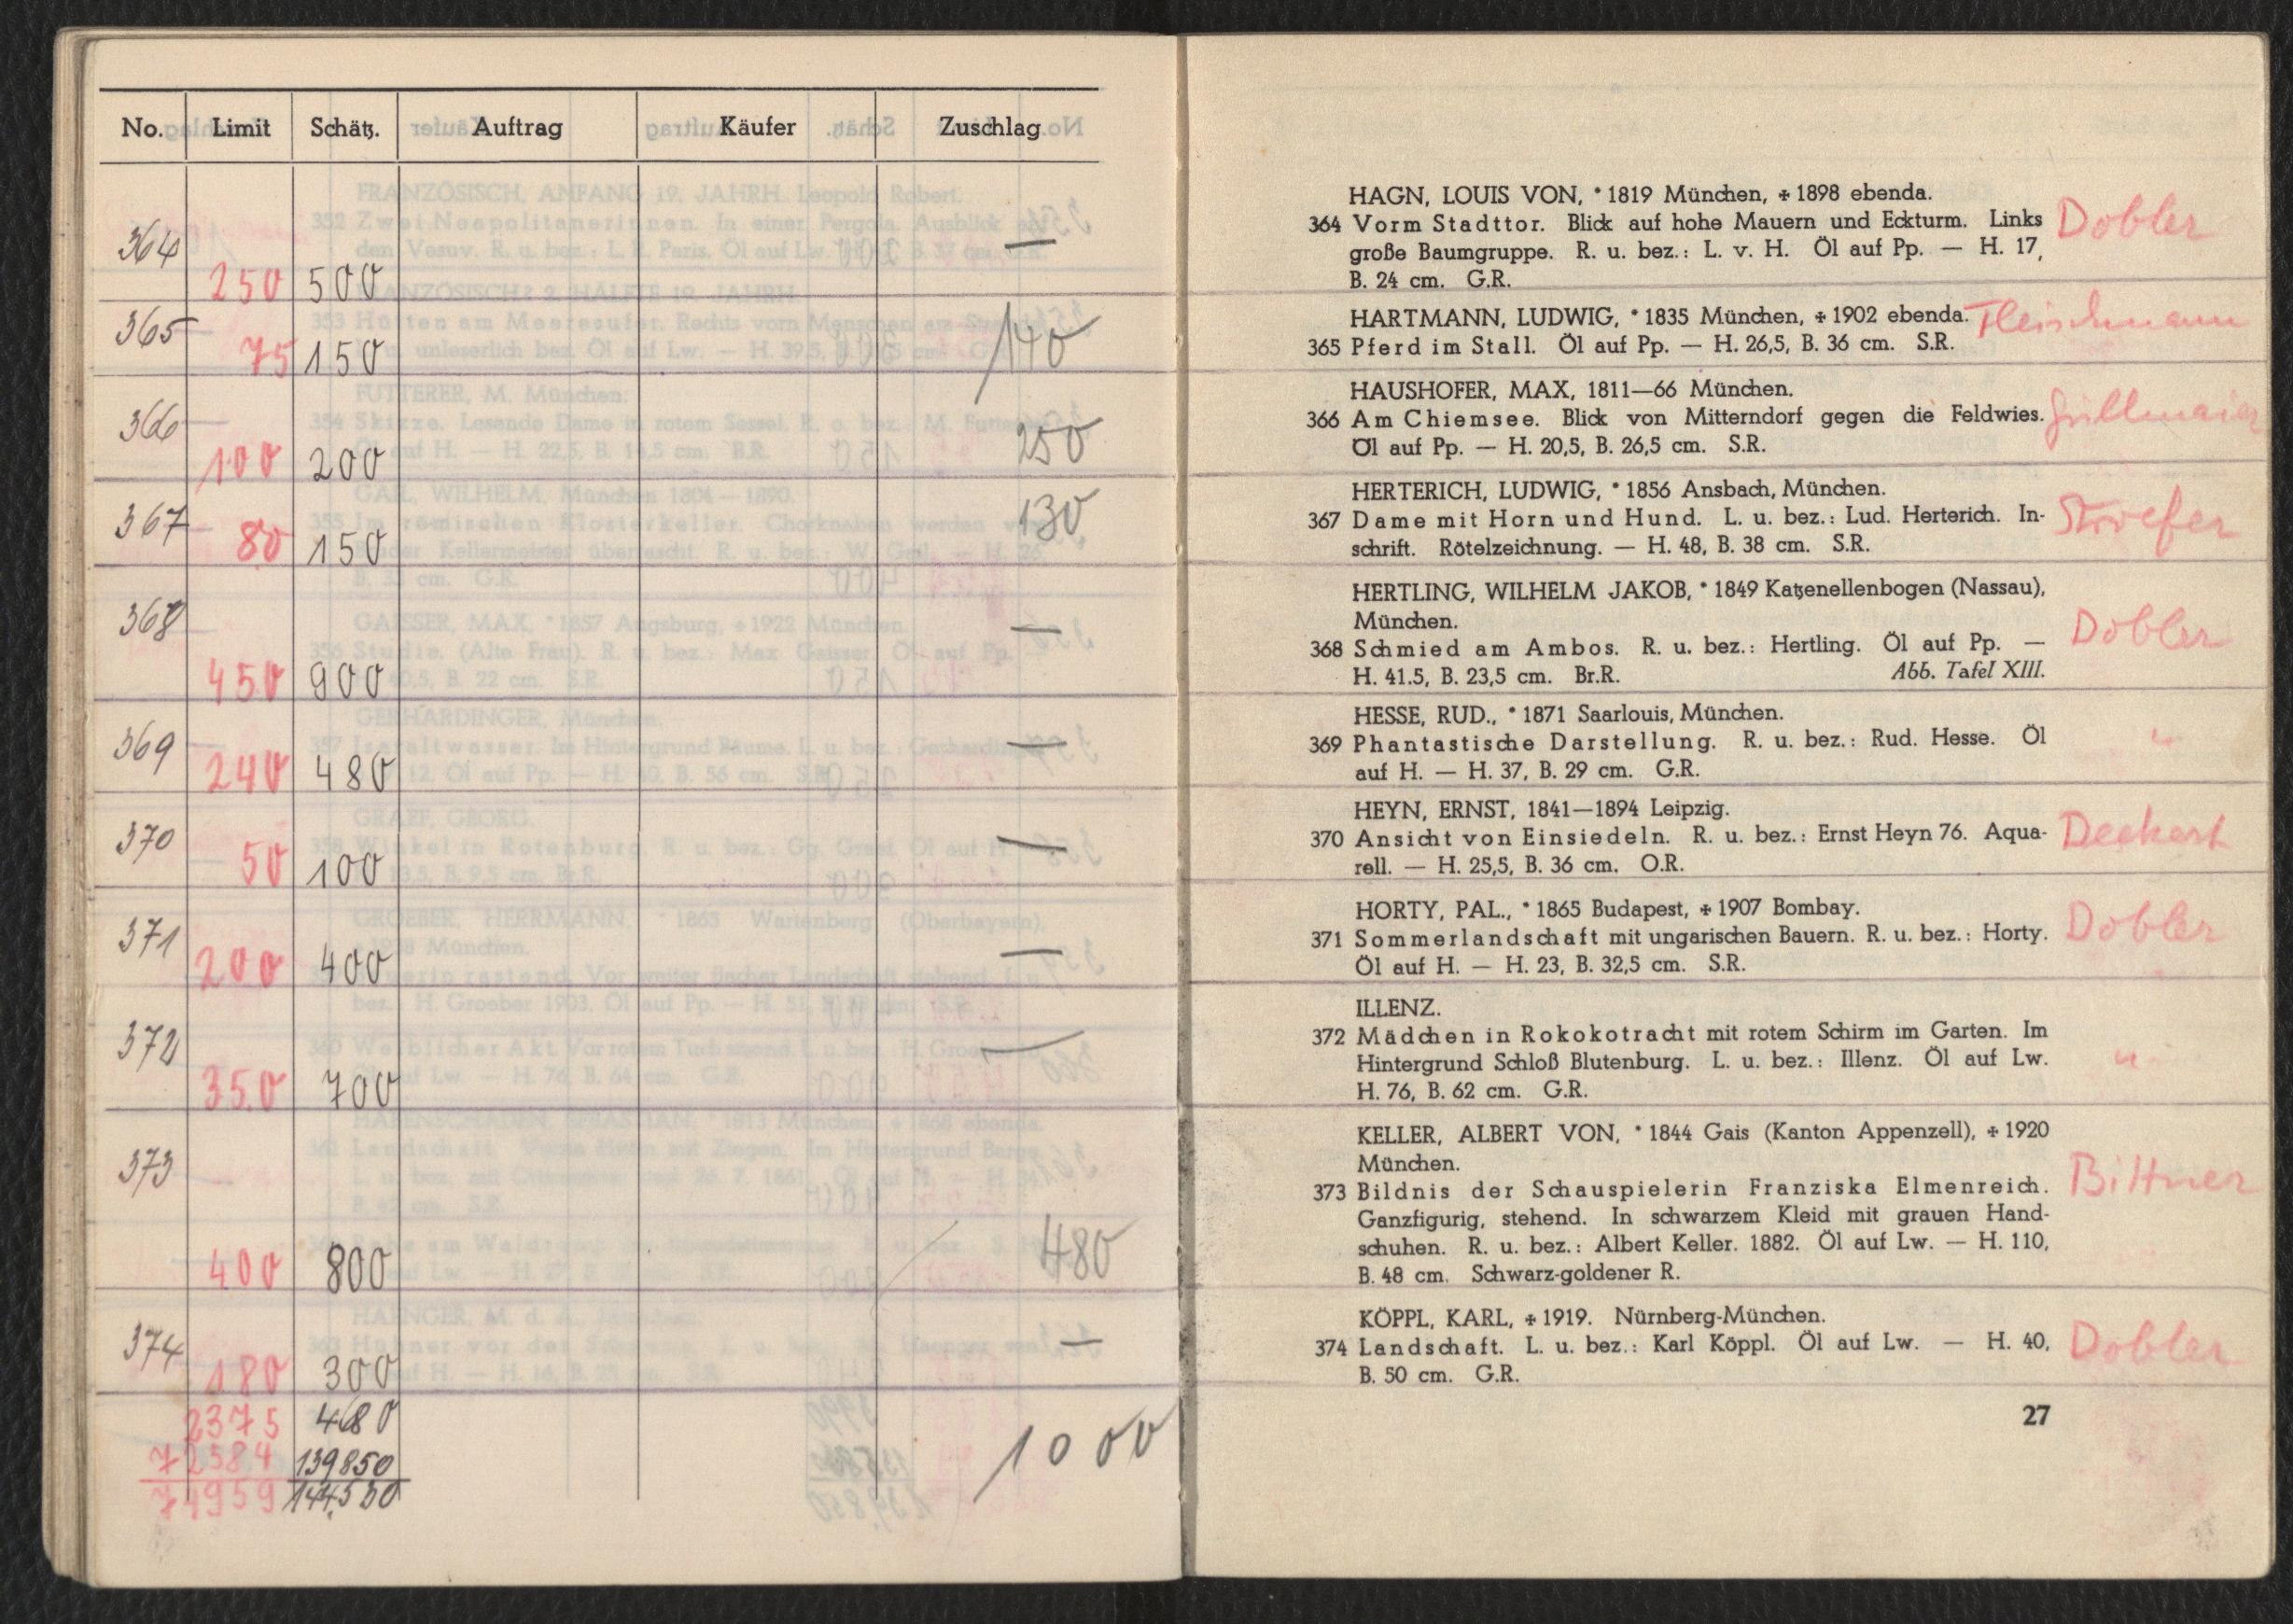 No. Limit Schätz. Auftrag Käufer Zuschlag
364 250 500 —
365 75 150 140
366 100 200 250
367 80 150 130
368 450 900 —
369 240 480 —
370 50 100 —
371 200 400 —
372 350 700 —
373 400 800 480
374 180 300 —
2375 4680
72584 139850
74959 144530
1000
HAGN, LOUIS VON, * 1819 München, ✝ 1898 ebenda.
364 Vorm Stadttor. Blick auf hohe Mauern und Eckturm. Links Dobler
große Baumgruppe. R. u. bez.: L. v. H. Öl auf Pp. — H. 17,
B. 24 cm. G.R.
HARTMANN, LUDWIG, * 1835 München, ✝ 1902 ebenda. Fleischmann
365 Pferd im Stall. Öl auf Pp. — H. 26,5, B. 36 cm. S.R.
HAUSHOFER, MAX, 1811—66 München.
366 Am Chiemsee. Blick von Mitterndorf gegen die Feldwies.
Öl auf Pp. — H. 20,5, B. 26,5 cm. S.R.
HERTERICH, LUDWIG, * 1856 Ansbach, München.
367 Dame mit Horn und Hund. L. u. bez.: Lud. Herterich. In-
schrift. Rötelzeichnung. — H. 48, B. 38 cm. S.R.
HERTLING, WILHELM JAKOB, * 1849 Katzenellenbogen (Nassau),
München. Dobler
368 Schmied am Ambos. R. u. bez.: Hertling. Öl auf Pp. —
H. 41.5, B. 23,5 cm. Br.R. Abb. Tafel XIII.
HESSE, RUD., * 1871 Saarlouis, München.
369 Phantastische Darstellung. R. u. bez.: Rud. Hesse. Öl "
auf H. — H. 37, B. 29 cm. G.R.
HEYN, ERNST, 1841—1894 Leipzig.
370 Ansicht von Einsiedeln. R. u. bez.: Ernst Heyn 76. Aqua- Deckert
rell. — H. 25,5, B. 36 cm. O.R.
HORTY, PAL., * 1865 Budapest, ✝ 1907 Bombay.
371 Sommerlandschaft mit ungarischen Bauern. R. u. bez.: Horty. Dobler
Öl auf H. — H. 23, B. 32,5 cm. S.R.
ILLENZ.
372 Mädchen in Rokokotracht mit rotem Schirm im Garten. Im
Hintergrund Schloß Blutenburg. L. u. bez.: Illenz. Öl auf Lw. "
H. 76, B. 62 cm. G.R.
KELLER, ALBERT VON, * 1844 Gais (Kanton Appenzell), ✝ 1920
München.
373 Bildnis der Schauspielerin Franziska Elmenreich. Bittner
Ganzfigurig, stehend. In schwarzem Kleid mit grauen Hand-
schuhen. R. u. bez.: Albert Keller. 1882. Öl auf Lw. — H. 110,
B. 48 cm. Schwarz-goldener R.
KÖPPL, KARL, ✝ 1919. Nürnberg-München.
374 Landschaft. L. u. bez.: Karl Köppl. Öl auf Lw. — H. 40, Dobler
B. 50 cm. G.R.
27